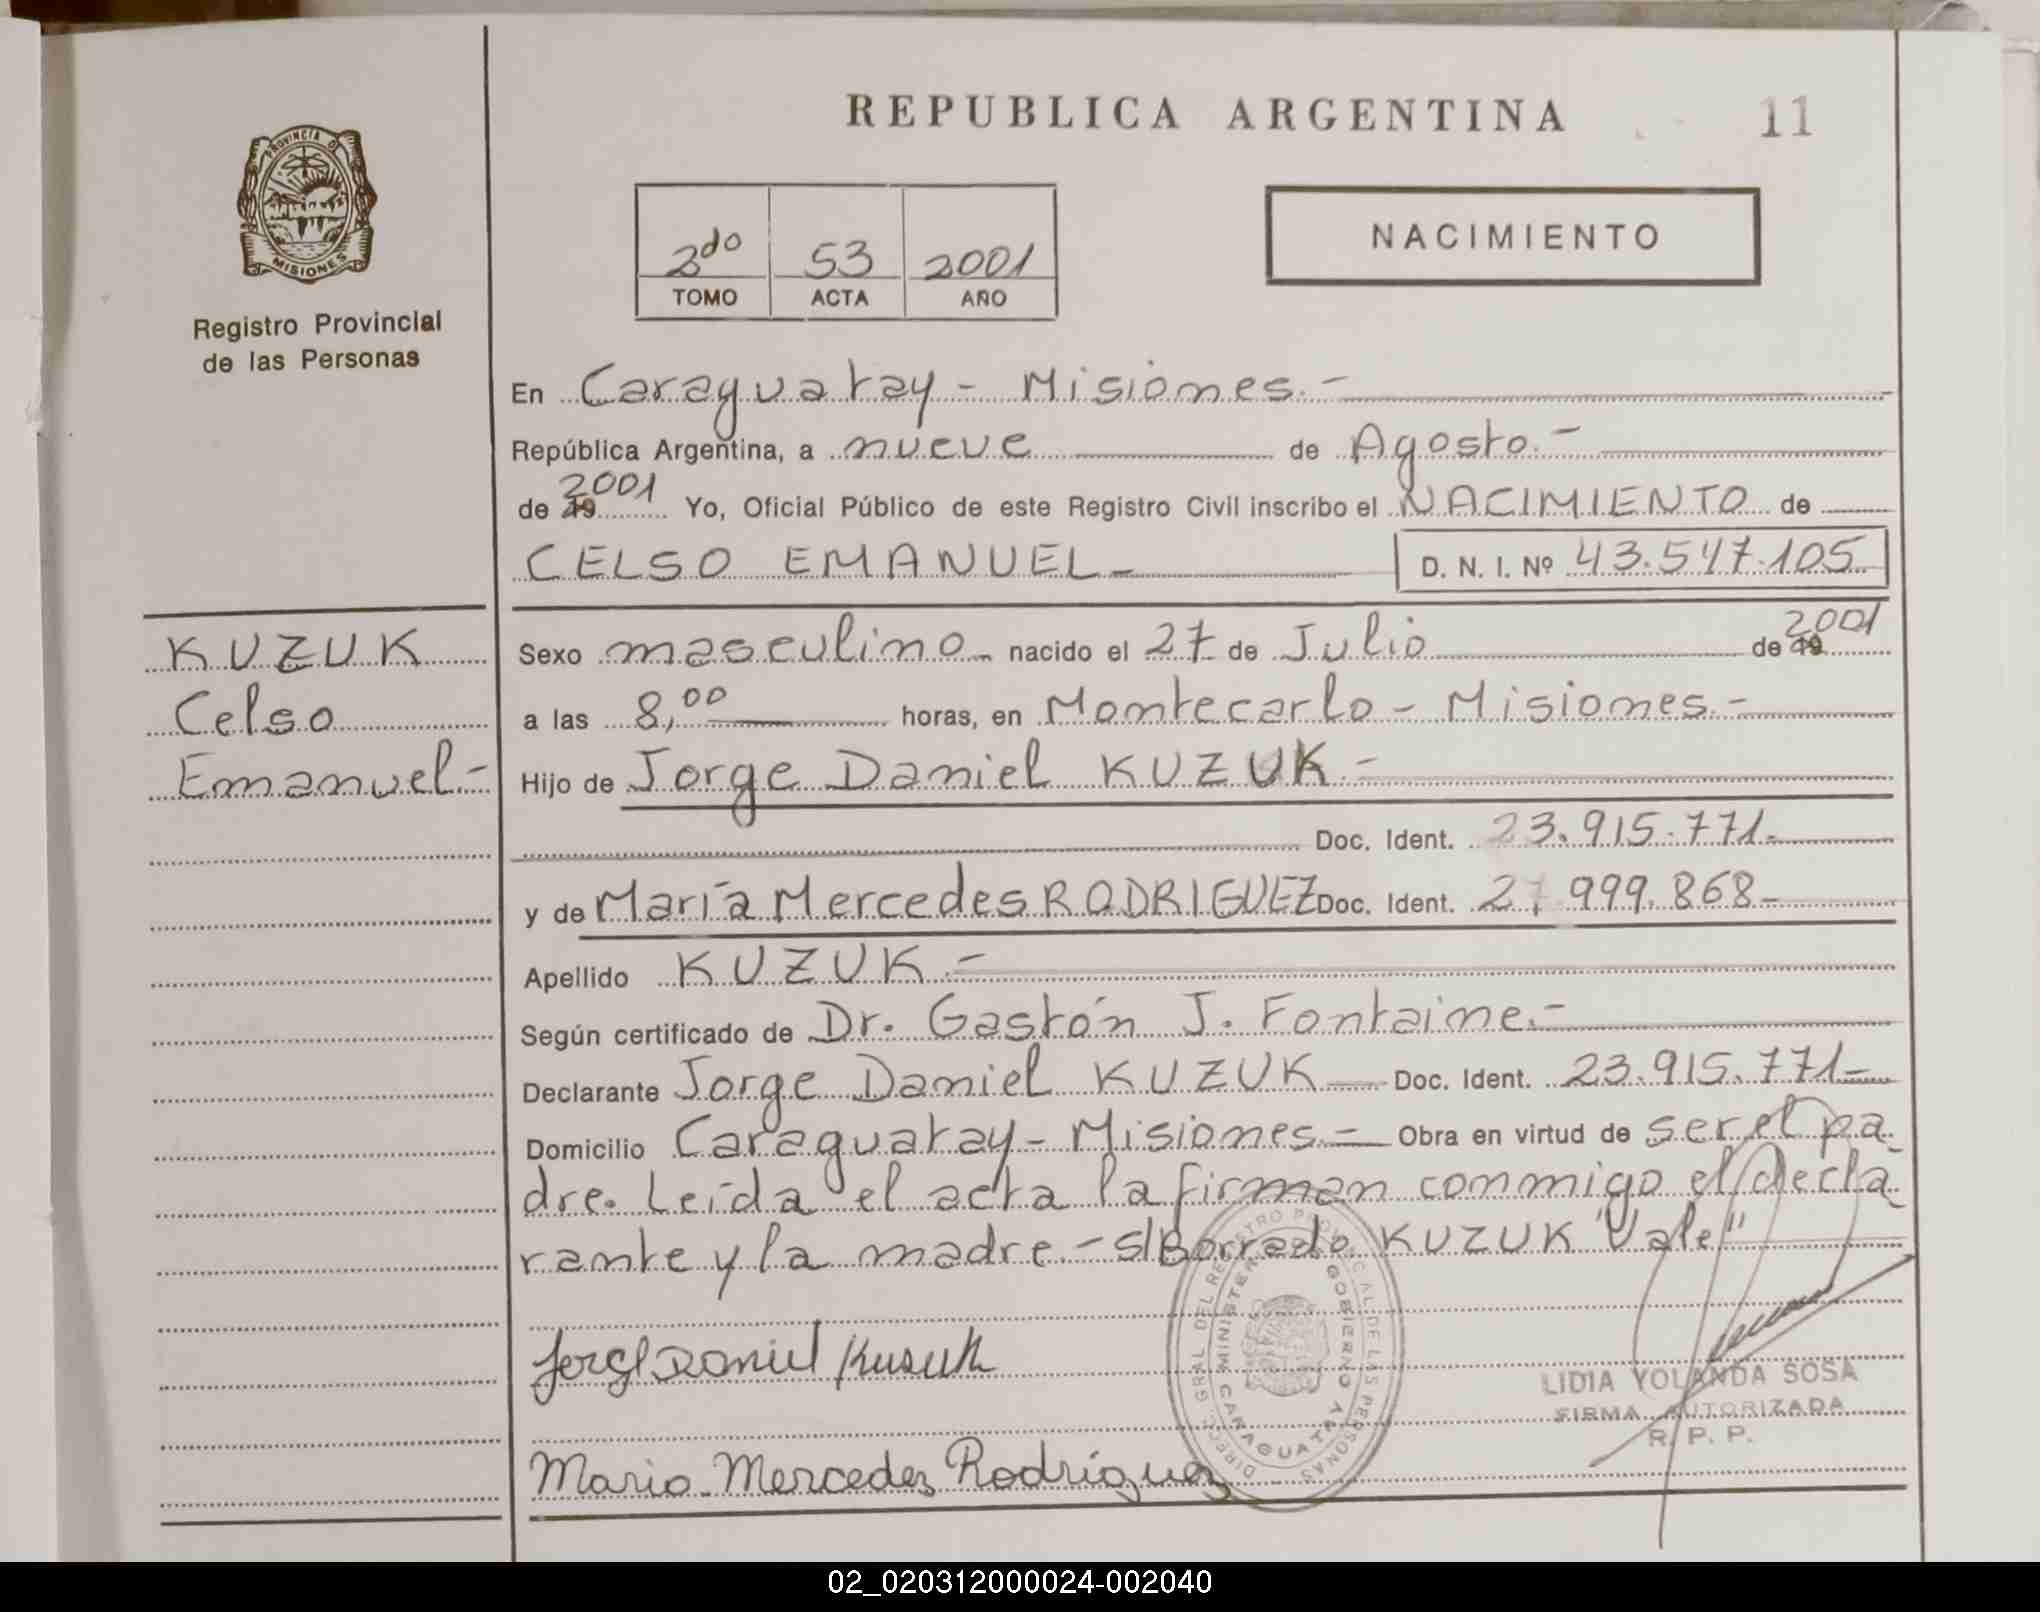 REPUBLICA ARGENTINA
11
PROVINCIA D
MISIONES
Registro Provincial
de las Personas
2do 53 2001
TOMO ACTA AÑO
NACIMIENTO
En Caraguatay - Misiones.-
República Argentina, a nueve de Agosto.-
de 19 2001 Yo, Oficial Público de este Registro Civil inscribo el NACIMIENTO de
CELSO EMANUEL- D. N. I. Nº 43.547.105
KUZUK
Celso
Emanuel-
Sexo masculino nacido el 27 de Julio de 19 2001
a las 8,00 horas, en Montecarlo - Misiones.-
Hijo de Jorge Daniel KUZUK.-
Doc. Ident. 23.915.771-
y de María Mercedes RODRIGUEZ Doc. Ident. 27.999.868-
Apellido KUZUK.-
Según certificado de Dr. Gastón J. Fontaine.-
Declarante Jorge Daniel KUZUK Doc. Ident. 23.915.771-
Domicilio Caraguatay - Misiones.- Obra en virtud de ser el pa
dre. Leída el acta la firman conmigo el decla
rante y la madre.- S/Borrado KUZUK "Vale"
Jorge Daniel Kusuk
Maria Mercedes Rodríguez
DIRECC. GRAL DEL REGISTRO PROVINCIAL DE LAS PERSONAS
MINISTER GOBIERNO
CARAGUATAY
LIDIA YOLANDA SOSA
FIRMA AUTORIZADA
R. P. P.
02_020312000024-002040